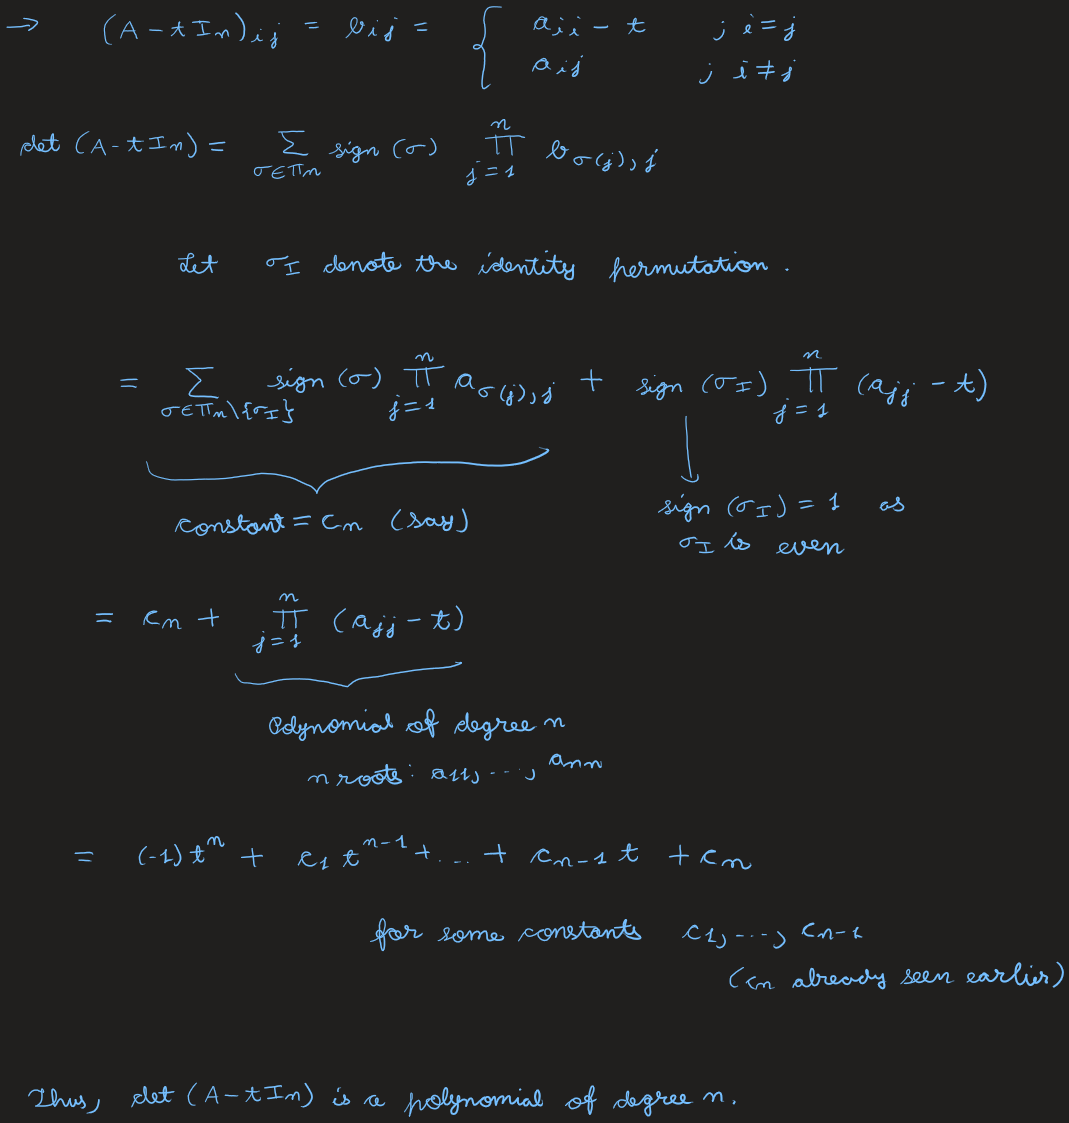 → (A - t Iₙ)ᵢⱼ = bᵢⱼ = { aᵢᵢ - t ; i = j
aᵢⱼ ; i ≠ j
det (A - t Iₙ) = Σ_{σ∈Πₙ} sign (σ) ∏_{j=1}^{n} b_{σ(j), j}
Let σ_I denote the identity permutation.
= Σ_{σ∈Πₙ\{σ_I}} sign (σ) ∏_{j=1}^{n} a_{σ(j), j} + sign (σ_I) ∏_{j=1}^{n} (aⱼⱼ - t)
constant = cₙ (say)
sign (σ_I) = 1 as
σ_I is even
= cₙ + ∏_{j=1}^{n} (aⱼⱼ - t)
Polynomial of degree n
n roots: a₁₁, ..., aₙₙ
= (-1) tⁿ + c₁ tⁿ⁻¹ + ... + cₙ₋₁ t + cₙ
for some constants c₁, ..., cₙ₋₁
(cₙ already seen earlier)
Thus, det (A - t Iₙ) is a polynomial of degree n.